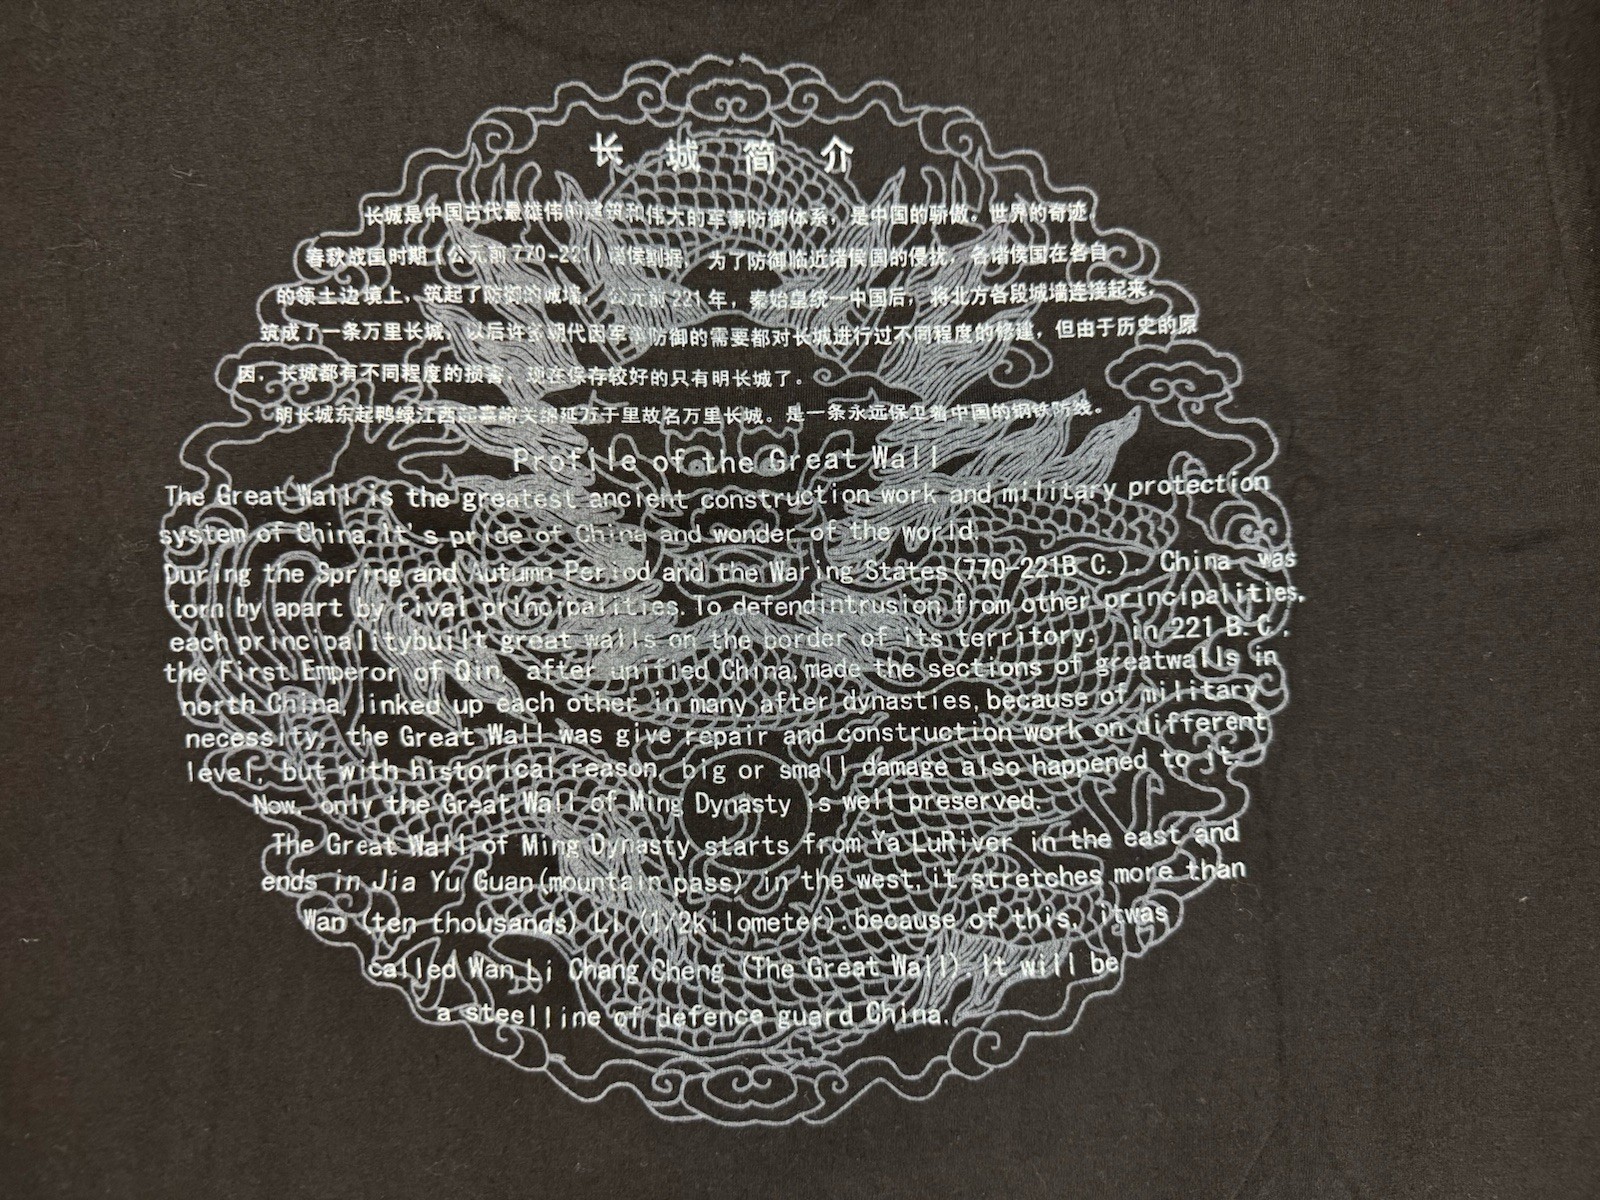 长城简介
长城是中国古代最雄伟的建筑和伟大的军事防御体系，是中国的骄傲。世界的奇迹。
春秋战国时期（公元前770-221）诸侯割据， 为了防御临近诸侯国的侵扰，各诸侯国在各自
的领土边境上，筑起了防御的城墙， 公元前221年，秦始皇统一中国后，将北方各段城墙连接起来，
筑成了一条万里长城，以后许多朝代因军事防御的需要都对长城进行过不同程度的修建，但由于历史的原
因，长城都有不同程度的损害，现在保存较好的只有明长城了。
明长城东起鸭绿江西起嘉峪关绵延万千里故名万里长城。是一条永远保卫着中国的钢铁防线。
Profile of the Great Wall
The Great Wall is the greatest ancient construction work and military protection
system of China. It's pride of China and wonder of the world.
During the Spring and Autumn Period and the Waring States(770-221B.C.). China was
torn by apart by rival principalities. To defendintrusion from other principalities,
each principalitybuilt great walls on the border of its territory. in 221 B.C.
the First Emperor of Qin, after unified China, made the sections of greatwalls in
north China, linked up each other in many after dynasties, because of military
necessity, the Great Wall was give repair and construction work on different
level, but with historical reason, big or small damage also happened to it.
Now, only the Great Wall of Ming Dynasty is well preserved.
The Great Wall of Ming Dynasty starts from Ya LuRiver in the east and
ends in Jia Yu Guan(mountain pass) in the west, it stretches more than
Wan (ten thousands) LI (1/2kilometer). because of this, itwas
called Wan Li Chang Cheng (The Great Wall). It will be
a steelline of defence guard China.